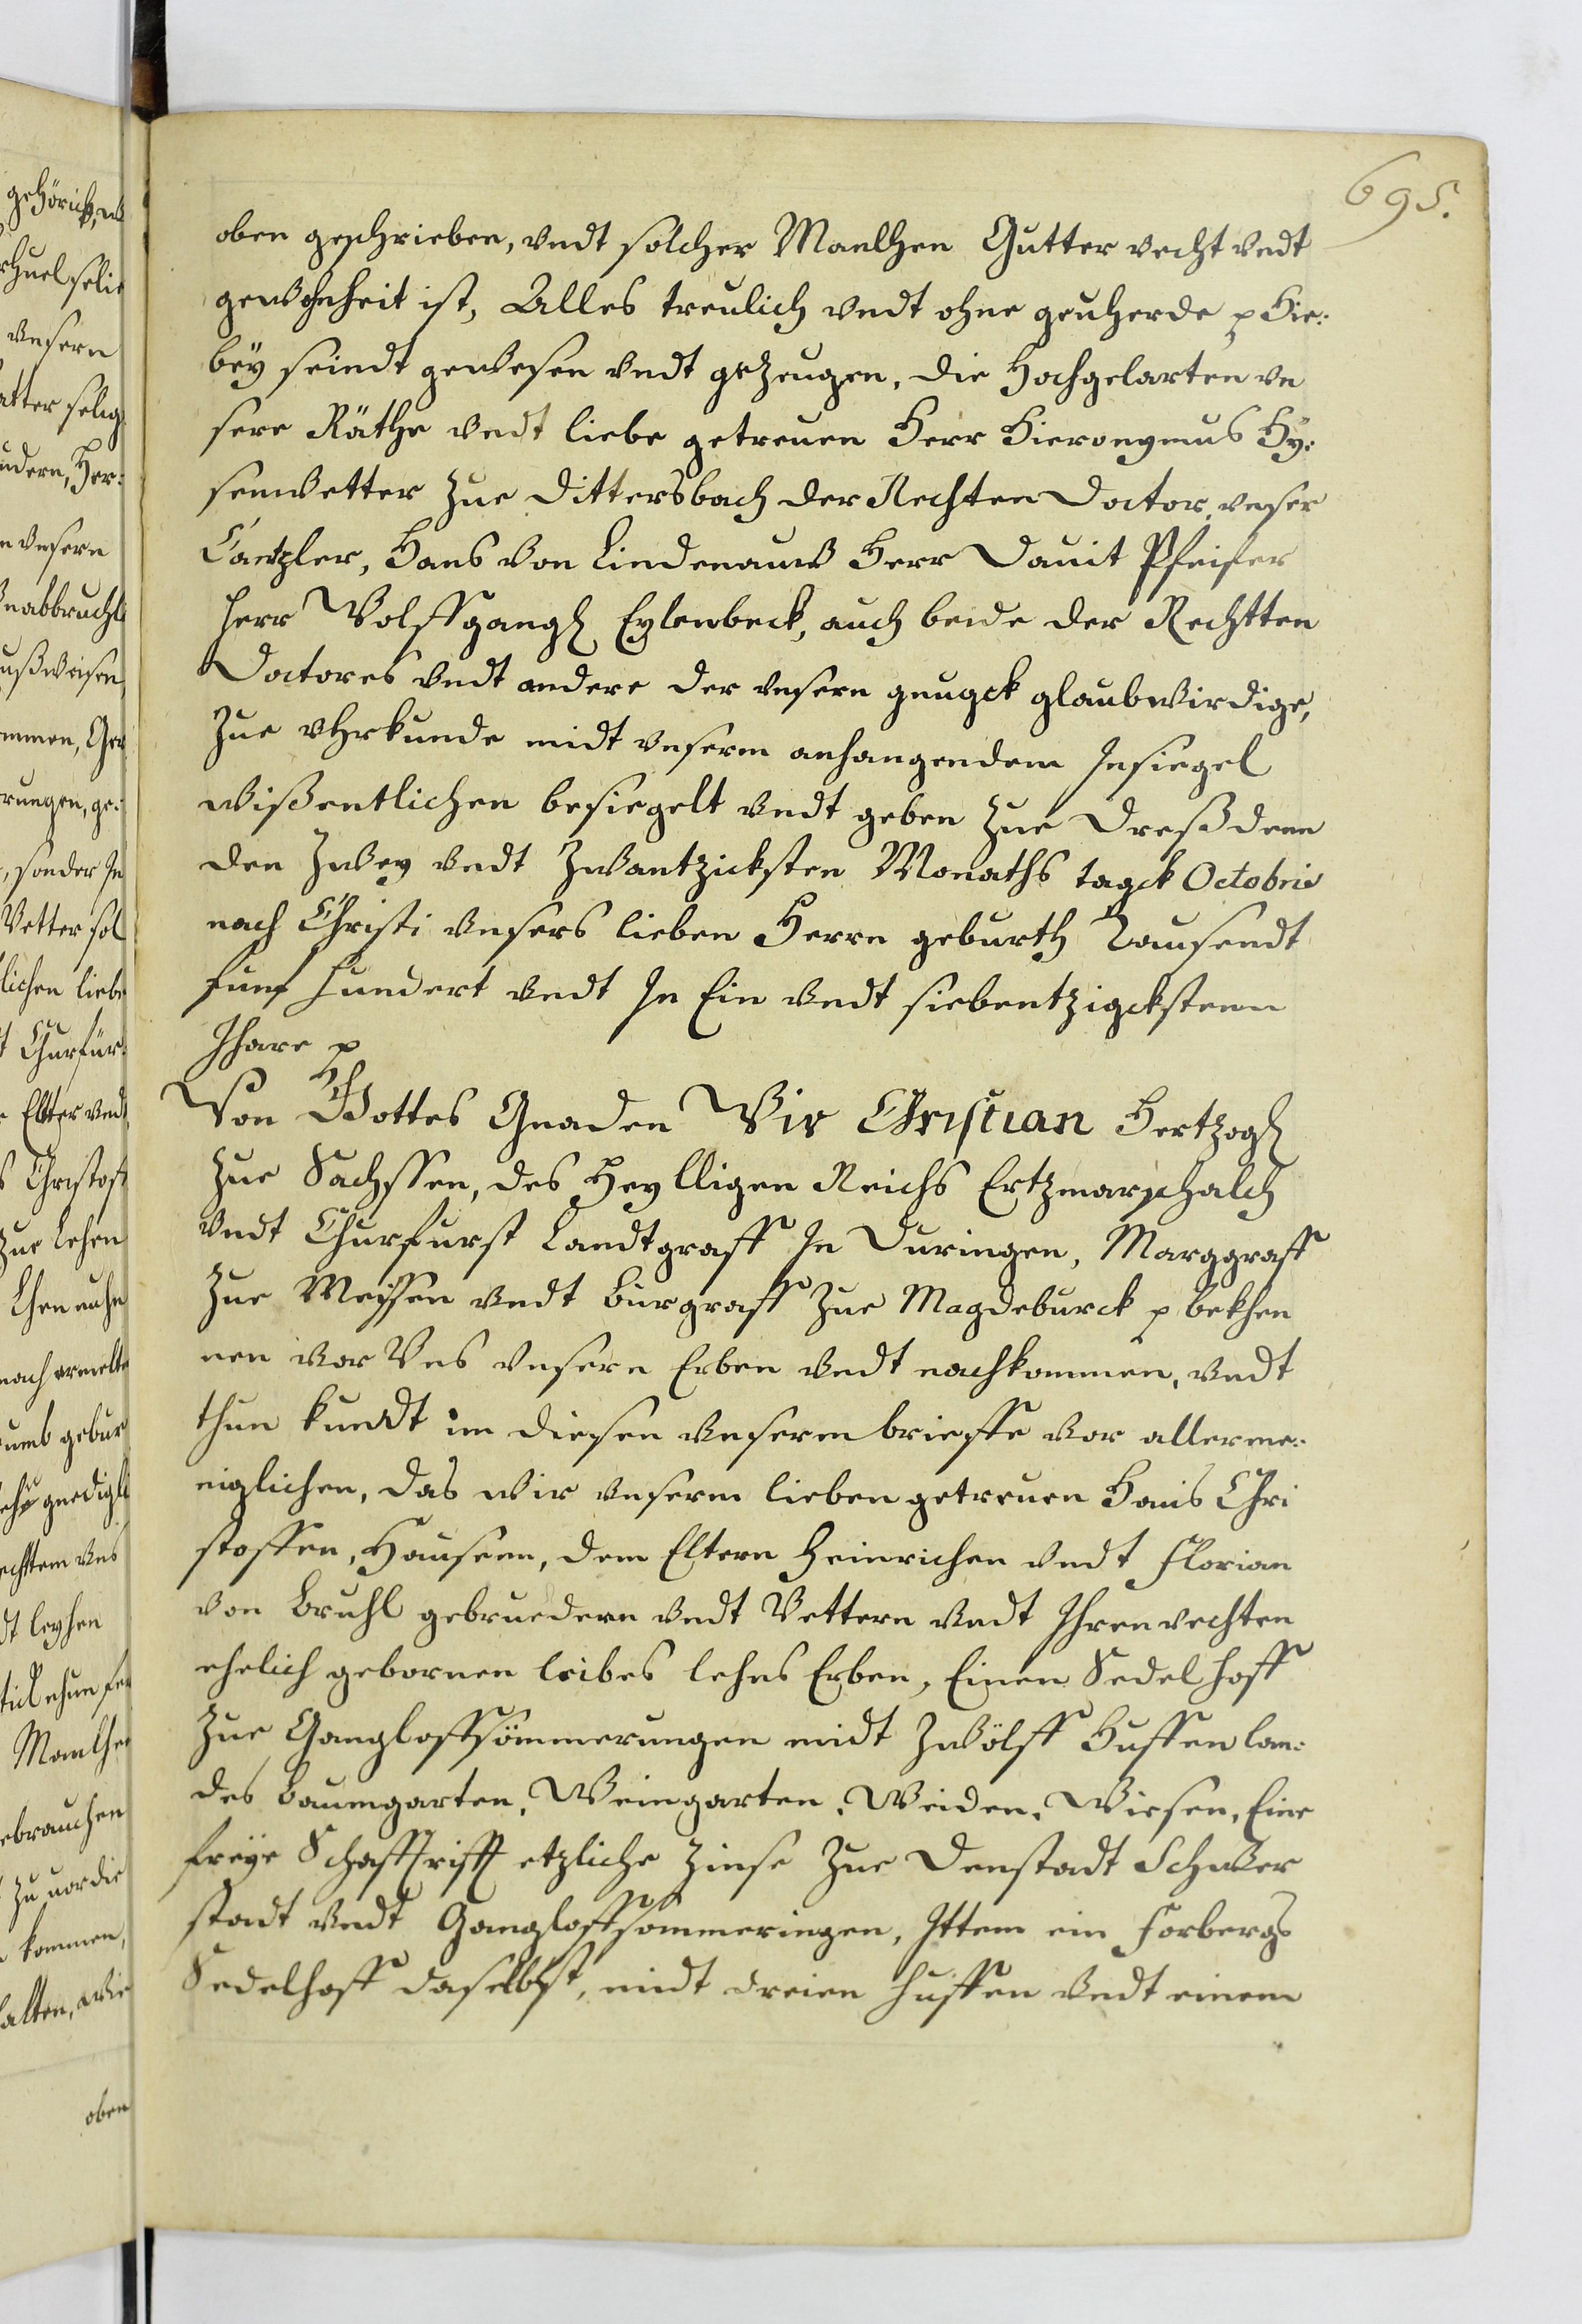 695.
oben geschrieben, vndt solcher Manlhen Gutter recht vndt
gewohnheit ist, Alles treulich vndt ohne geuherde p Hie:
beÿ seindt gewesen vndt gezeugen, die Hochgelarten vn
sere Räthe vndt liebe getreuen Herr Hieronymus Ky:
senwetter Zue Dittersbach der Rechten Doctor, vnser
Cantzler, Hans von Lindenauw Herr Dauit Pfeifer
Herr Wolffgangh Eylenbeck, auch beide der Rechtten
Doctores vndt andere der vnsern gnugck glaubwirdige,
Zue vhrkunde midt vnserm anhangendem Insiegel
wißentlichen besiegelt vndt geben Zue Dreßdenn
den Zwey vndt Zwantzicksten Monaths tagck Octobris
nach Christi vnsers lieben Herrn geburth Tausendt
funf hundert vndt In Ein vndt siebentzigckstenn
Jhare p
Von Gottes Gnaden Wir Christian Hertzogh
Zue Sachssen, des Heylligen Reichs Ertzmarschalch
vndt Churfurst Landtgraff In Duringen, Marggraff
Zue Meissen vndt Burgraff Zue Magdeburck p bekhen
nen vor Vns vnsere Erben vndt nachkommen, vndt
thun kundt im diesen vnserm brieffe vor allerme:
niglichen, das wir vnserm lieben getreuen Hans Chri
stoffen, Hausenn, dem Eltern Heinrichen vndt Florian
von Bruhl gebruedern vndt Vettern vndt Ihren rechten
ehelich gebornen leibes lehns Erben, Einen Sedelhoff
Zue Gangloffsömmerungen midt Zwölff Huffen lan:
des Baumgarten, Weingarten, Weiden, Wiesen, Eine
freÿe Schafftrifft etzliche Zinse Zue Denstadt Schwer
stadt vndt Gangloffsommeringen, Ittem ein Forbergs
Sedelhoff daselbst, midt dreien Huffen vndt einem
gehörick,
vnsern
sonder In
Vetter sol
lichen liebe
Churfür:
Elter vndt
Christoff
Zue lehen
leyhen
Manlhen
gebrauchen
Zu uor die
kommen,
halten, wie
oben